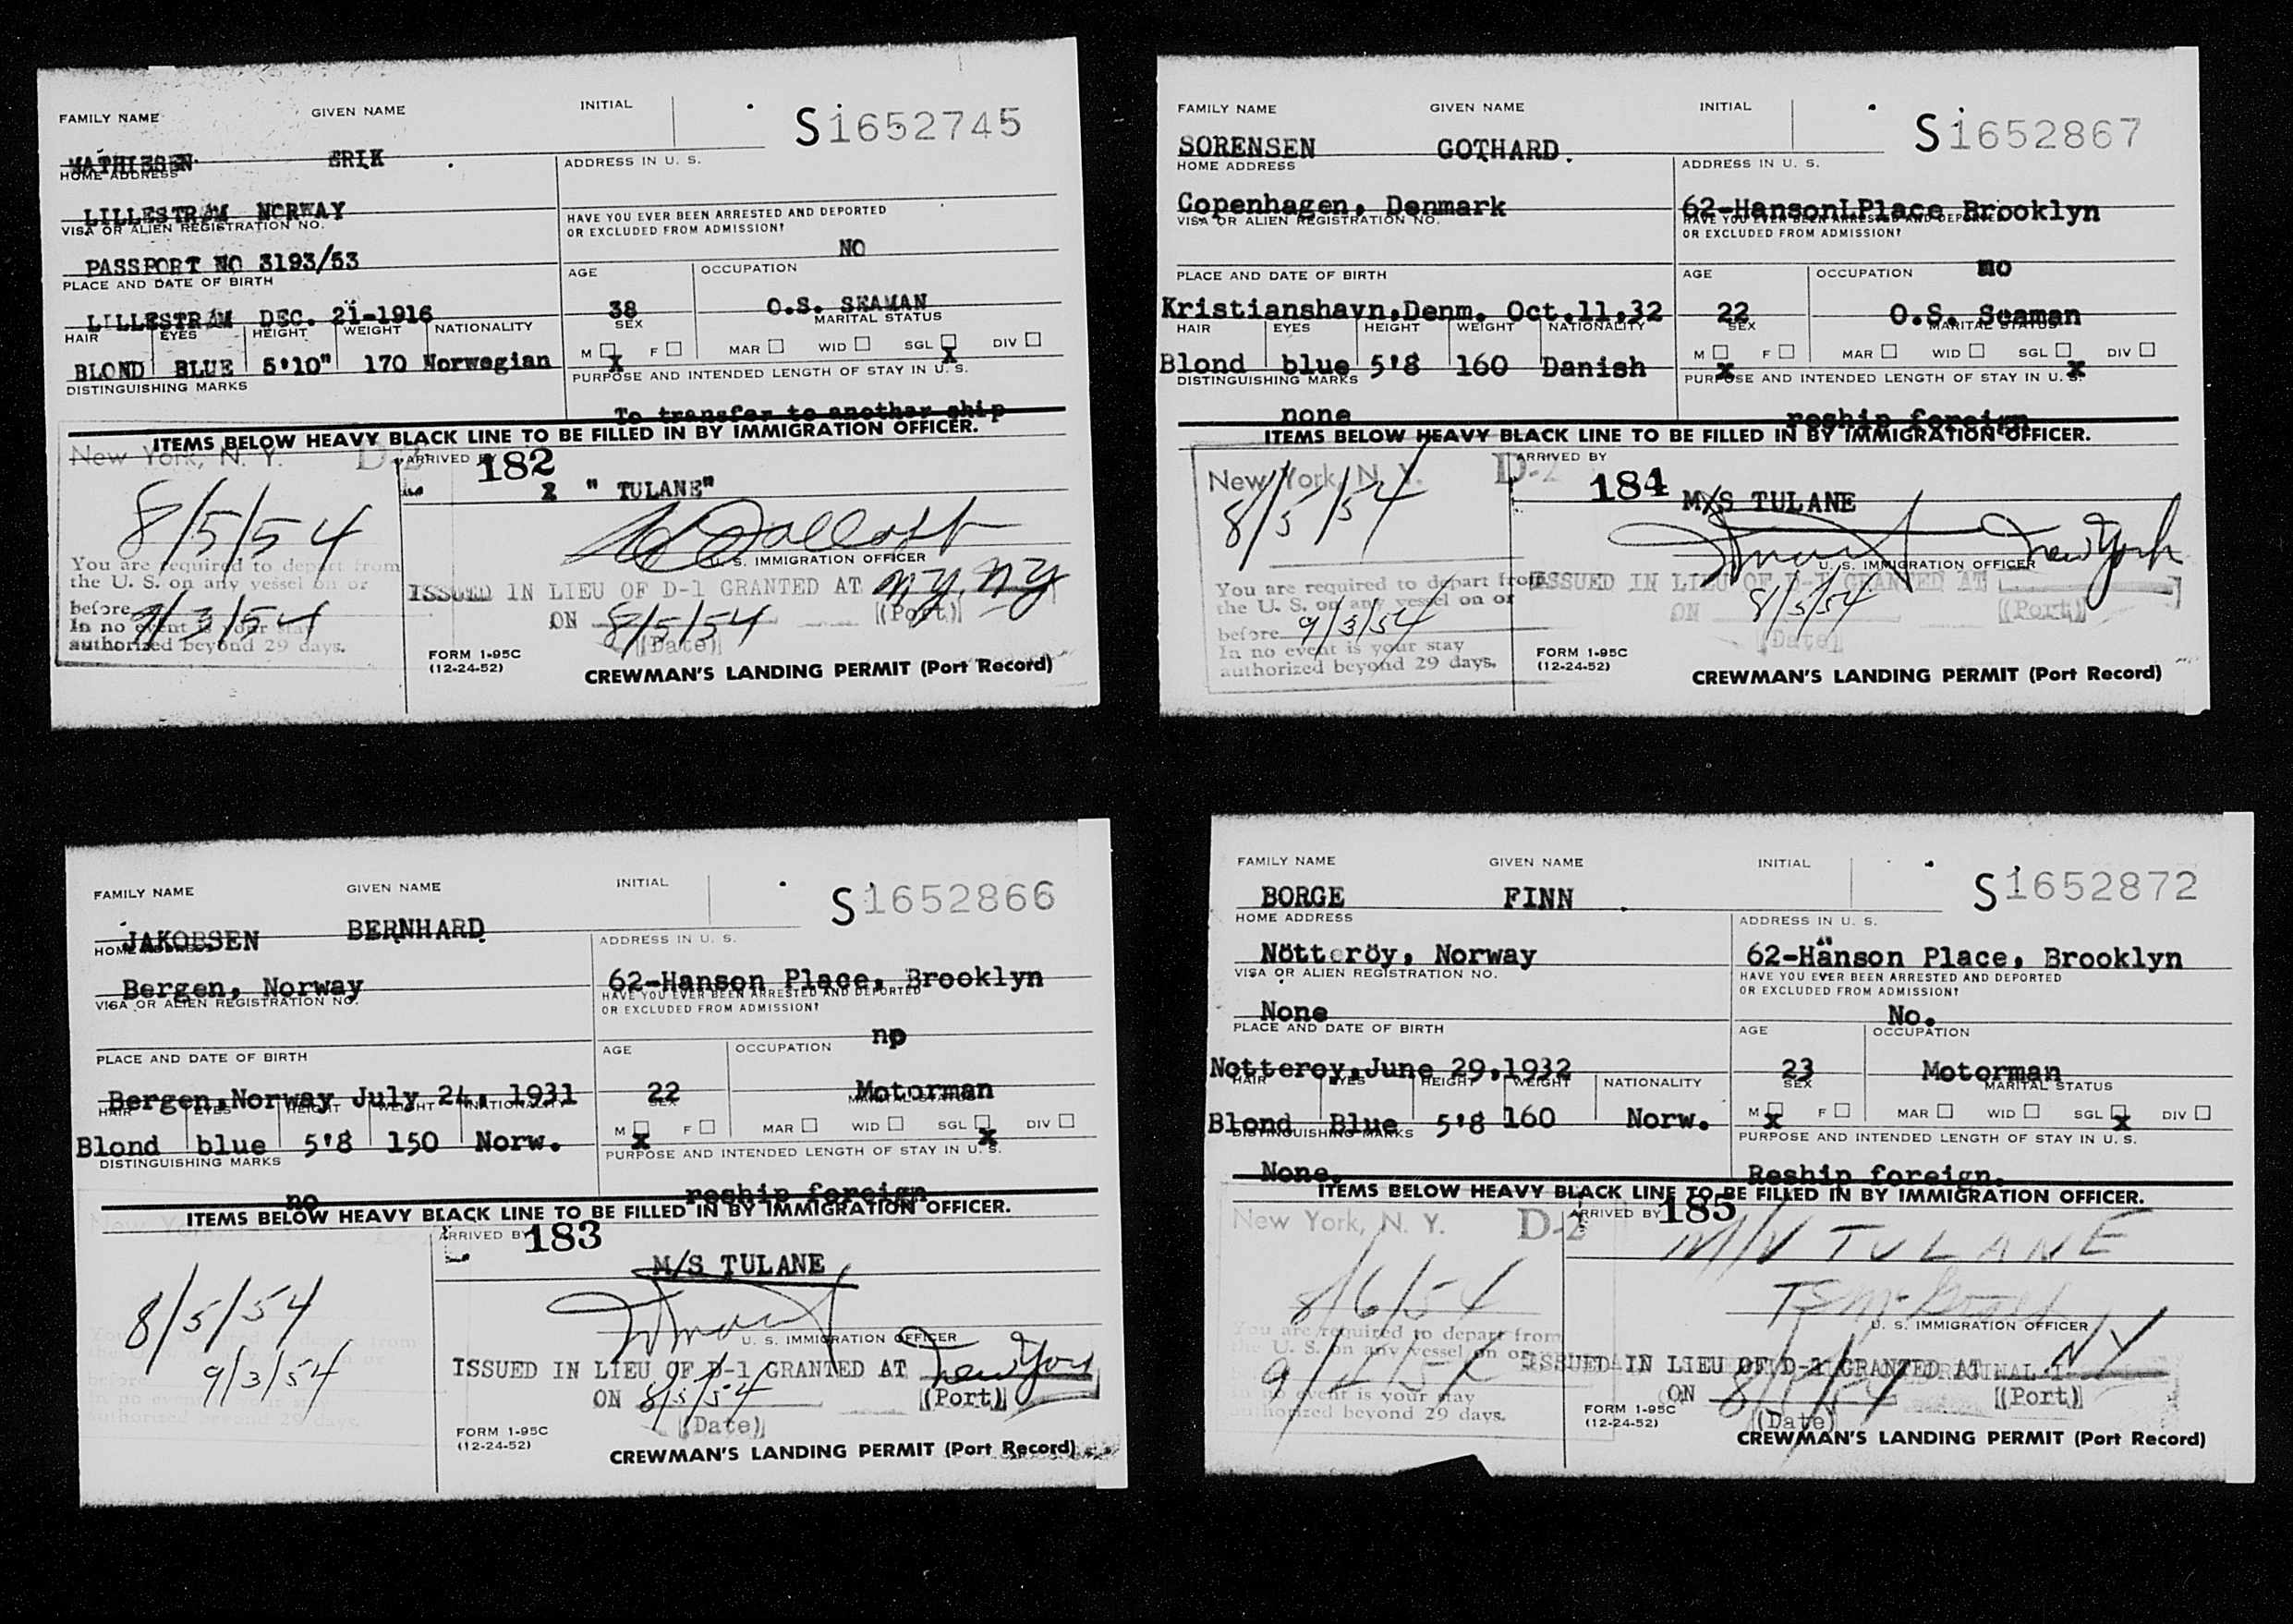 FAMILY NAME GIVEN NAME INITIAL
S1652745
MATHIESEN ERIK
HOME ADDRESS ADDRESS IN U. S.
LILLESTRØM NORWAY
VISA OR ALIEN REGISTRATION NO. HAVE YOU EVER BEEN ARRESTED AND DEPORTED
OR EXCLUDED FROM ADMISSION?
PASSPORT NO 3193/53 NO
PLACE AND DATE OF BIRTH AGE OCCUPATION
LILLESTRØM DEC. 21-1916 38 O.S. SEAMAN
HAIR EYES HEIGHT WEIGHT NATIONALITY SEX MARITAL STATUS
M F MAR WID SGL DIV
BLOND BLUE 5'10" 170 Norwegian X X
DISTINGUISHING MARKS PURPOSE AND INTENDED LENGTH OF STAY IN U. S.
To transfer to another ship
ITEMS BELOW HEAVY BLACK LINE TO BE FILLED IN BY IMMIGRATION OFFICER.
New York, N. Y. D-2 ARRIVED BY 182
" TULANE"
8/5/54
U. S. IMMIGRATION OFFICER
You are required to depart from
the U. S. on any vessel on or
before 9/3/54
In no event is your stay
authorized beyond 29 days.
ISSUED IN LIEU OF D-1 GRANTED AT N.Y. N.Y.
ON 8/5/54 (Port)
(Date)
FORM I-95C
(12-24-52)
CREWMAN'S LANDING PERMIT (Port Record)
FAMILY NAME GIVEN NAME INITIAL
S1652867
SORENSEN GOTHARD.
HOME ADDRESS ADDRESS IN U. S.
Copenhagen, Denmark 62-Hanson Place Brooklyn
VISA OR ALIEN REGISTRATION NO. HAVE YOU EVER BEEN ARRESTED AND DEPORTED
OR EXCLUDED FROM ADMISSION?
no
PLACE AND DATE OF BIRTH AGE OCCUPATION
Kristianshavn,Denm. Oct.11,32 22 O.S. Seaman
HAIR EYES HEIGHT WEIGHT NATIONALITY SEX MARITAL STATUS
M F MAR WID SGL DIV
Blond blue 5'8 160 Danish x x
DISTINGUISHING MARKS PURPOSE AND INTENDED LENGTH OF STAY IN U. S.
none reship foreign
ITEMS BELOW HEAVY BLACK LINE TO BE FILLED IN BY IMMIGRATION OFFICER.
New York, N. Y. D-2 ARRIVED BY 184
M/S TULANE
8/5/54
U. S. IMMIGRATION OFFICER
New York
You are required to depart from
the U. S. on any vessel on or
before 9/3/54
In no event is your stay
authorized beyond 29 days.
ISSUED IN LIEU OF D-1 GRANTED AT
ON 8/5/54 (Port)
(Date)
FORM I-95C
(12-24-52)
CREWMAN'S LANDING PERMIT (Port Record)
FAMILY NAME GIVEN NAME INITIAL
S1652866
JAKOBSEN BERNHARD
HOME ADDRESS ADDRESS IN U. S.
Bergen, Norway 62-Hanson Place, Brooklyn
VISA OR ALIEN REGISTRATION NO. HAVE YOU EVER BEEN ARRESTED AND DEPORTED
OR EXCLUDED FROM ADMISSION?
np
PLACE AND DATE OF BIRTH AGE OCCUPATION
Bergen,Norway July 24, 1931 22 Motorman
HAIR EYES HEIGHT WEIGHT NATIONALITY SEX MARITAL STATUS
M F MAR WID SGL DIV
Blond blue 5'8 150 Norw. x x
DISTINGUISHING MARKS PURPOSE AND INTENDED LENGTH OF STAY IN U. S.
no reship foreign
ITEMS BELOW HEAVY BLACK LINE TO BE FILLED IN BY IMMIGRATION OFFICER.
ARRIVED BY 183
M/S TULANE
8/5/54
9/3/54
U. S. IMMIGRATION OFFICER
ISSUED IN LIEU OF D-1 GRANTED AT New York
ON 8/5/54 (Port)
(Date)
FORM I-95C
(12-24-52)
CREWMAN'S LANDING PERMIT (Port Record)
FAMILY NAME GIVEN NAME INITIAL
S1652872
BORGE FINN
HOME ADDRESS ADDRESS IN U. S.
Nötteröy, Norway 62-Hanson Place, Brooklyn
VISA OR ALIEN REGISTRATION NO. HAVE YOU EVER BEEN ARRESTED AND DEPORTED
OR EXCLUDED FROM ADMISSION?
None No.
PLACE AND DATE OF BIRTH AGE OCCUPATION
Notteroy,June 29,1932 23 Motorman
HAIR EYES HEIGHT WEIGHT NATIONALITY SEX MARITAL STATUS
M F MAR WID SGL DIV
Blond Blue 5'8 160 Norw. x x
DISTINGUISHING MARKS PURPOSE AND INTENDED LENGTH OF STAY IN U. S.
None. Reship foreign.
ITEMS BELOW HEAVY BLACK LINE TO BE FILLED IN BY IMMIGRATION OFFICER.
New York, N. Y. D-2 ARRIVED BY 185
M/V TULANE
8/6/54
U. S. IMMIGRATION OFFICER
You are required to depart from
the U. S. on any vessel on or
In no event is your stay
authorized beyond 29 days.
ISSUED IN LIEU OF D-1 GRANTED AT NY
ON (Port)
(Date)
FORM I-95C
(12-24-52)
CREWMAN'S LANDING PERMIT (Port Record)